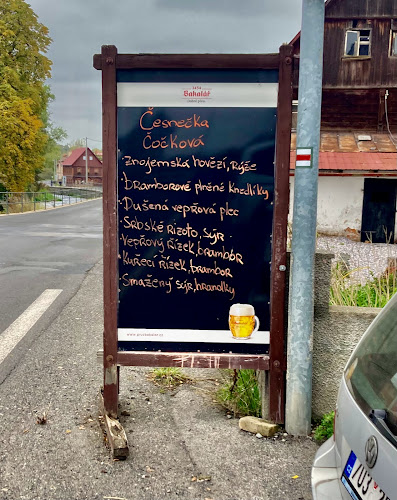 Bakalář
Česnečka
Čočková
Znojemská hovězí, Rýže
bramborové plněné knedlíky
Dušená vepřová plec
Srbské rizoto, sýr
Vepřový řízek, brambor
Kuřecí řízek, brambor
Smažený sýr, hranolky